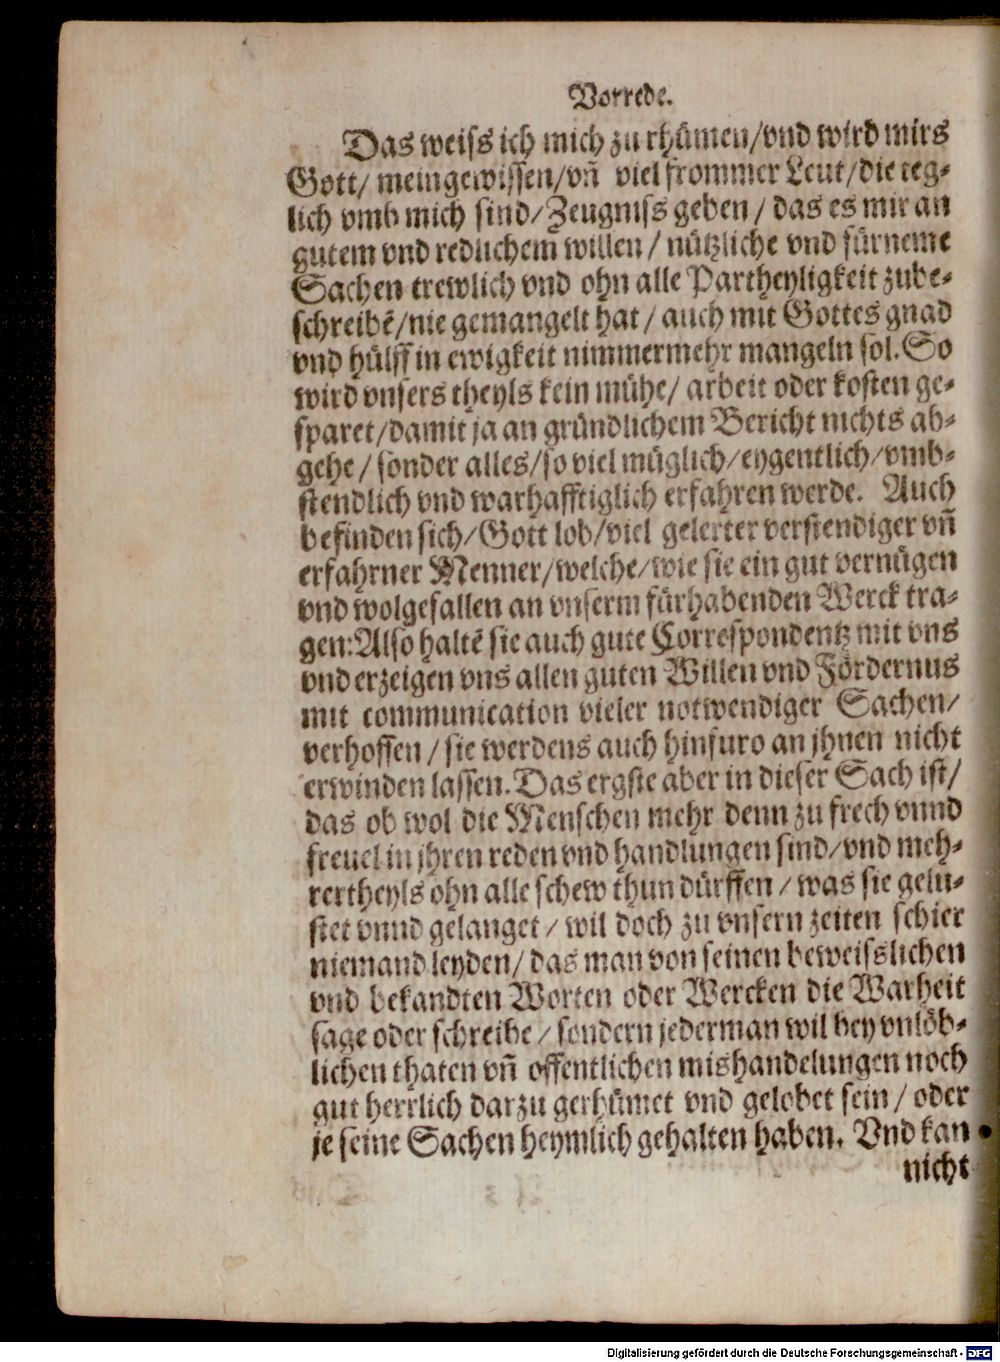 Vorrede.
Das weiſs ich mich zu rhümen/vnd wird mirs
Gott/ mein gewiſſen/vñ viel frommer Leut/die teg⸗
lich vmb mich ſind/Zeugniſs geben / das es mir an
gutem vnd redlichem willen / nützliche vnd fürneme
Sachen trewlich vnd ohn alle Partheyligkeit zube⸗
ſchreibẽ/nie gemangelt hat / auch mit Gottes gnad
vnd hülff in ewigkeit nimmermehr mangeln ſol. So
wird vnſers theyls kein mühe/ arbeit oder koſten ge⸗
ſparet/damit ja an gründlichem Bericht nichts ab⸗
gehe / ſonder alles/ſo viel müglich/eygentlich/vmb⸗
ſtendlich vnd warhafftiglich erfahren werde. Auch
befinden ſich/Gott lob/viel gelerter verſtendiger vñ
erfahrner Menner/welche/wie ſie ein gut vernügen
vnd wolgefallen an vnſerm fürhabenden Werck tra⸗
gen: Alſo haltẽ ſie auch gute Correſpondentz mit vns
vnd erzeigen vns allen guten Willen vnd Fördernus
mit communication vieler notwendiger Sachen/
verhoffen / ſie werdens auch hinfuro an jhnen nicht
erwinden laſſen. Das ergſte aber in dieſer Sach iſt/
das ob wol die Menſchen mehr denn zu frech vnnd
freuel in jhren reden vnd handlungen ſind/vnd meh⸗
rertheyls ohn alle ſchew thun dürffen / was ſie gelu⸗
ſtet vnnd gelanget / wil doch zu vnſern zeiten ſchier
niemand leyden/ das man von ſeinen beweiſslichen
vnd bekandten Worten oder Wercken die Warheit
ſage oder ſchreibe / ſondern jederman wil bey vnlöb⸗
lichen thaten vñ offentlichen mishandelungen noch
gut herrlich darzu gerhümet vnd gelobet ſein / oder
je ſeine Sachen heymlich gehalten haben. Vnd kan
nicht
Digitalisierung gefördert durch die Deutsche Forschungsgemeinschaft - DFG